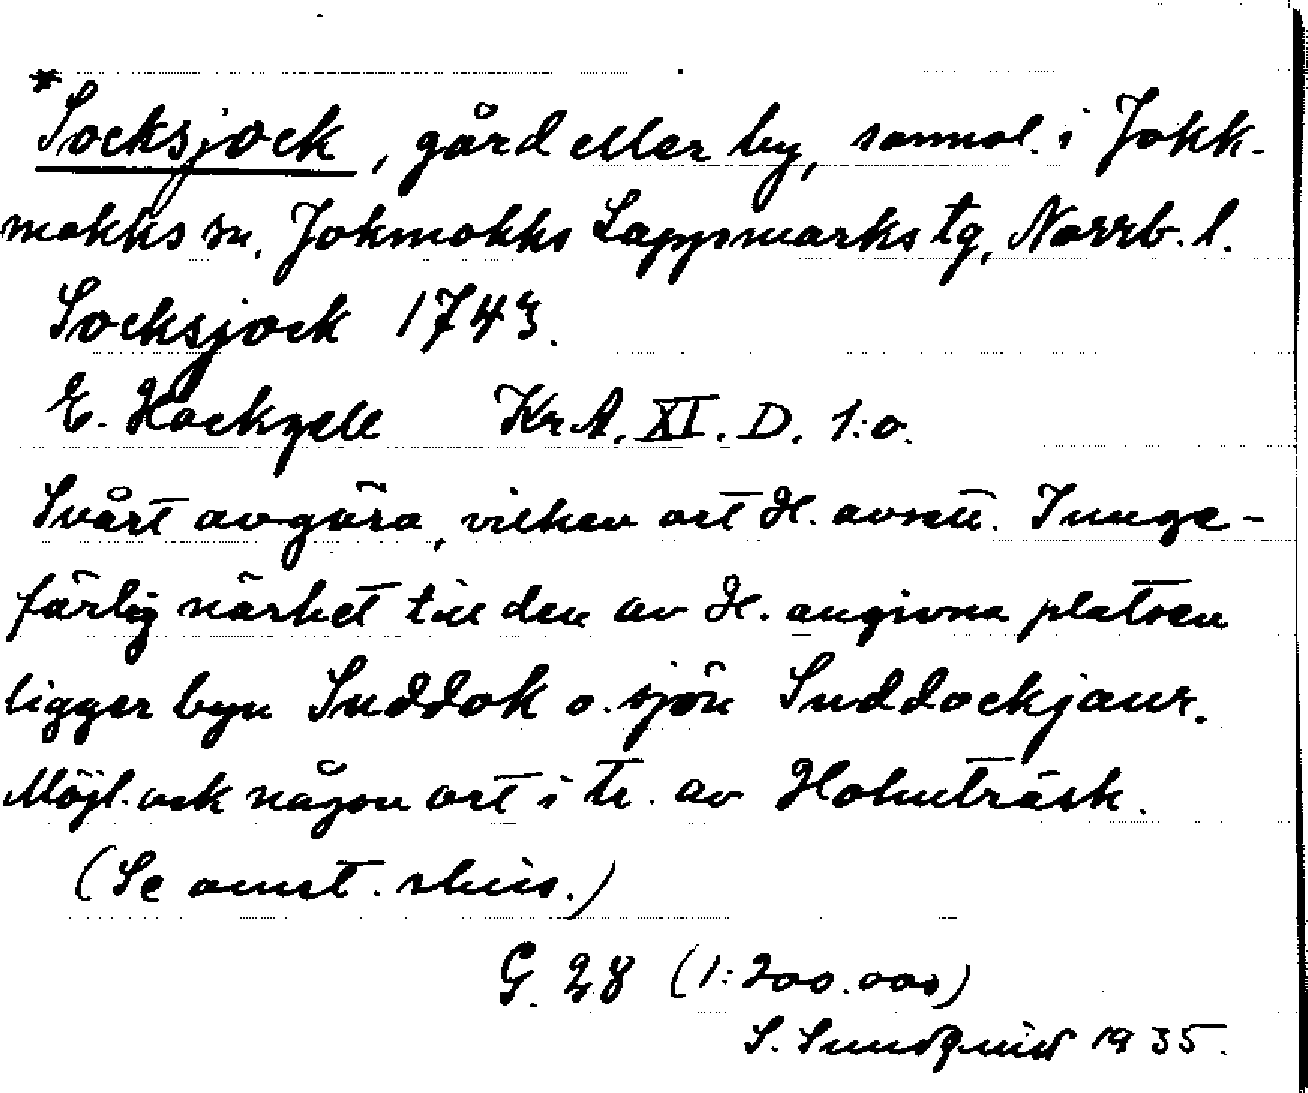 *Socksjock, gård eller by, sannol. i Jokk-
mokks sn, Jokmokks Lappmarks tg, Norrb. l.
Socksjock 1743.
E. Hackzell Kr. A. XI. D. 1:a.
Svårt avgöra, vilken ort H. avsett. I unge-
färlig närhet till den av H. angivna platsen
ligger byn Suddok o. sjön Suddockjaur.
Möjl. ock någon ort i tr. av Holmträsk.
(Se omst. skiss.)
G. 28 (1:200.000)
S. Sundquist 1935.